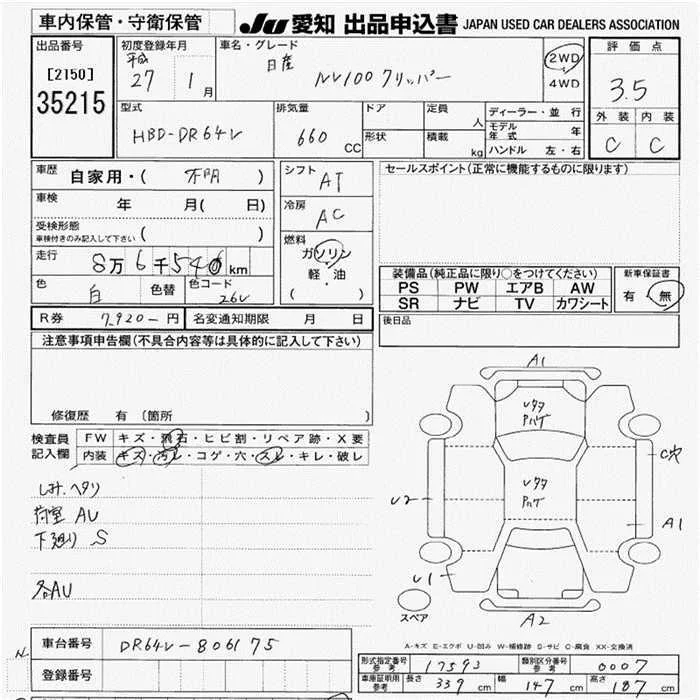 車内保管・守衛保管 JU 愛知 出品申込書 JAPAN USED CAR DEALERS ASSOCIATION
出品番号 初度登録年月 車名・グレード 評価点
[2150] 平成 日産 2WD
35215 27 1月 NV100クリッパー 4WD 3.5
型式 排気量 ドア 定員 人 ディーラー・並行 外装 内装
HBD-DR64V 660 CC 形状 積載 kg モデル年式 年 C C
ハンドル 左・右
車歴 自家用・( 不明 ) シフト AT セールスポイント(正常に機能するものに限ります)
車検 年 月( 日) 冷房 AC
受検形態
車検付きのみ記入して下さい ( )
燃料
走行 8万6千546km ガソリン
軽・油
( )
装備品(純正品に限り○をつけてください) 新車保証書
色 白 色替 色コード 26U PS PW エアB AW 有・無
SR ナビ TV カワシート
R券 7,920-円 名変通知期限 月 日 後日品
注意事項申告欄(不具合内容等は具体的に記入して下さい)
修復歴 有 〔箇所 〕
検査員 FW キズ・飛石・ヒビ割・リペア跡・X要
記入欄 内装 キズ・汚レ・コゲ・穴・スレ・キレ・破レ
しみ、ヘタリ
荷室 AU
下廻り S
各AU
A1
Uタタ
Pハゲ
C穴
Uタタ
Pハゲ
U2
A1
U1
スペア
A2
A-キズ E-エクボ U-凹み W-補修跡 S-サビ C-腐食 XX-交換済
車台番号 DR64V-806175
登録番号
形式指定番号 参考 17593 類別区分番号 参考 0007
車庫証明用 参考 長さ 339 cm 幅 147 cm 高さ 187 cm